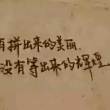 有拼出来的美丽,
没有等出来的辉煌